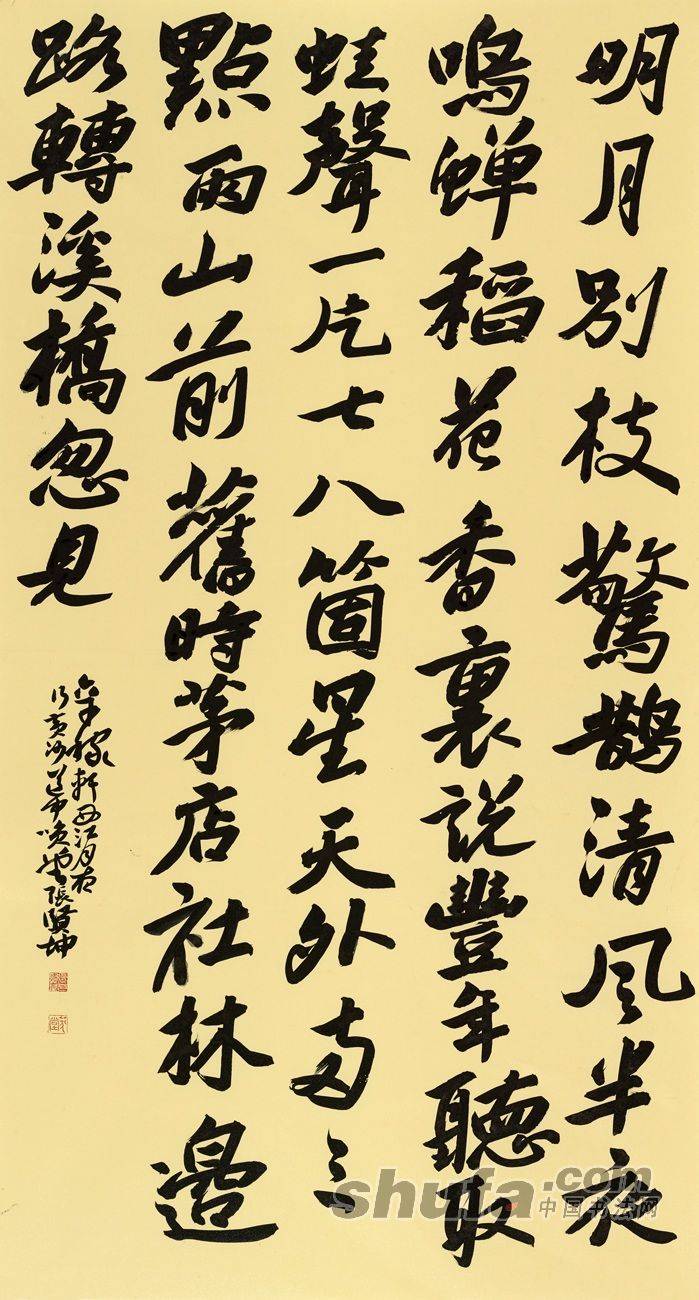 明月别枝驚鹊清风半夜
鳴蝉稻花香裏説豐年聽取
蛙聲一片七八箇星天外两三
點雨山前舊時茅店社林邊
路轉溪橋忽見
辛稼軒西江月夜
行黄沙道中 張賢坤
shufa.com
中国书法网